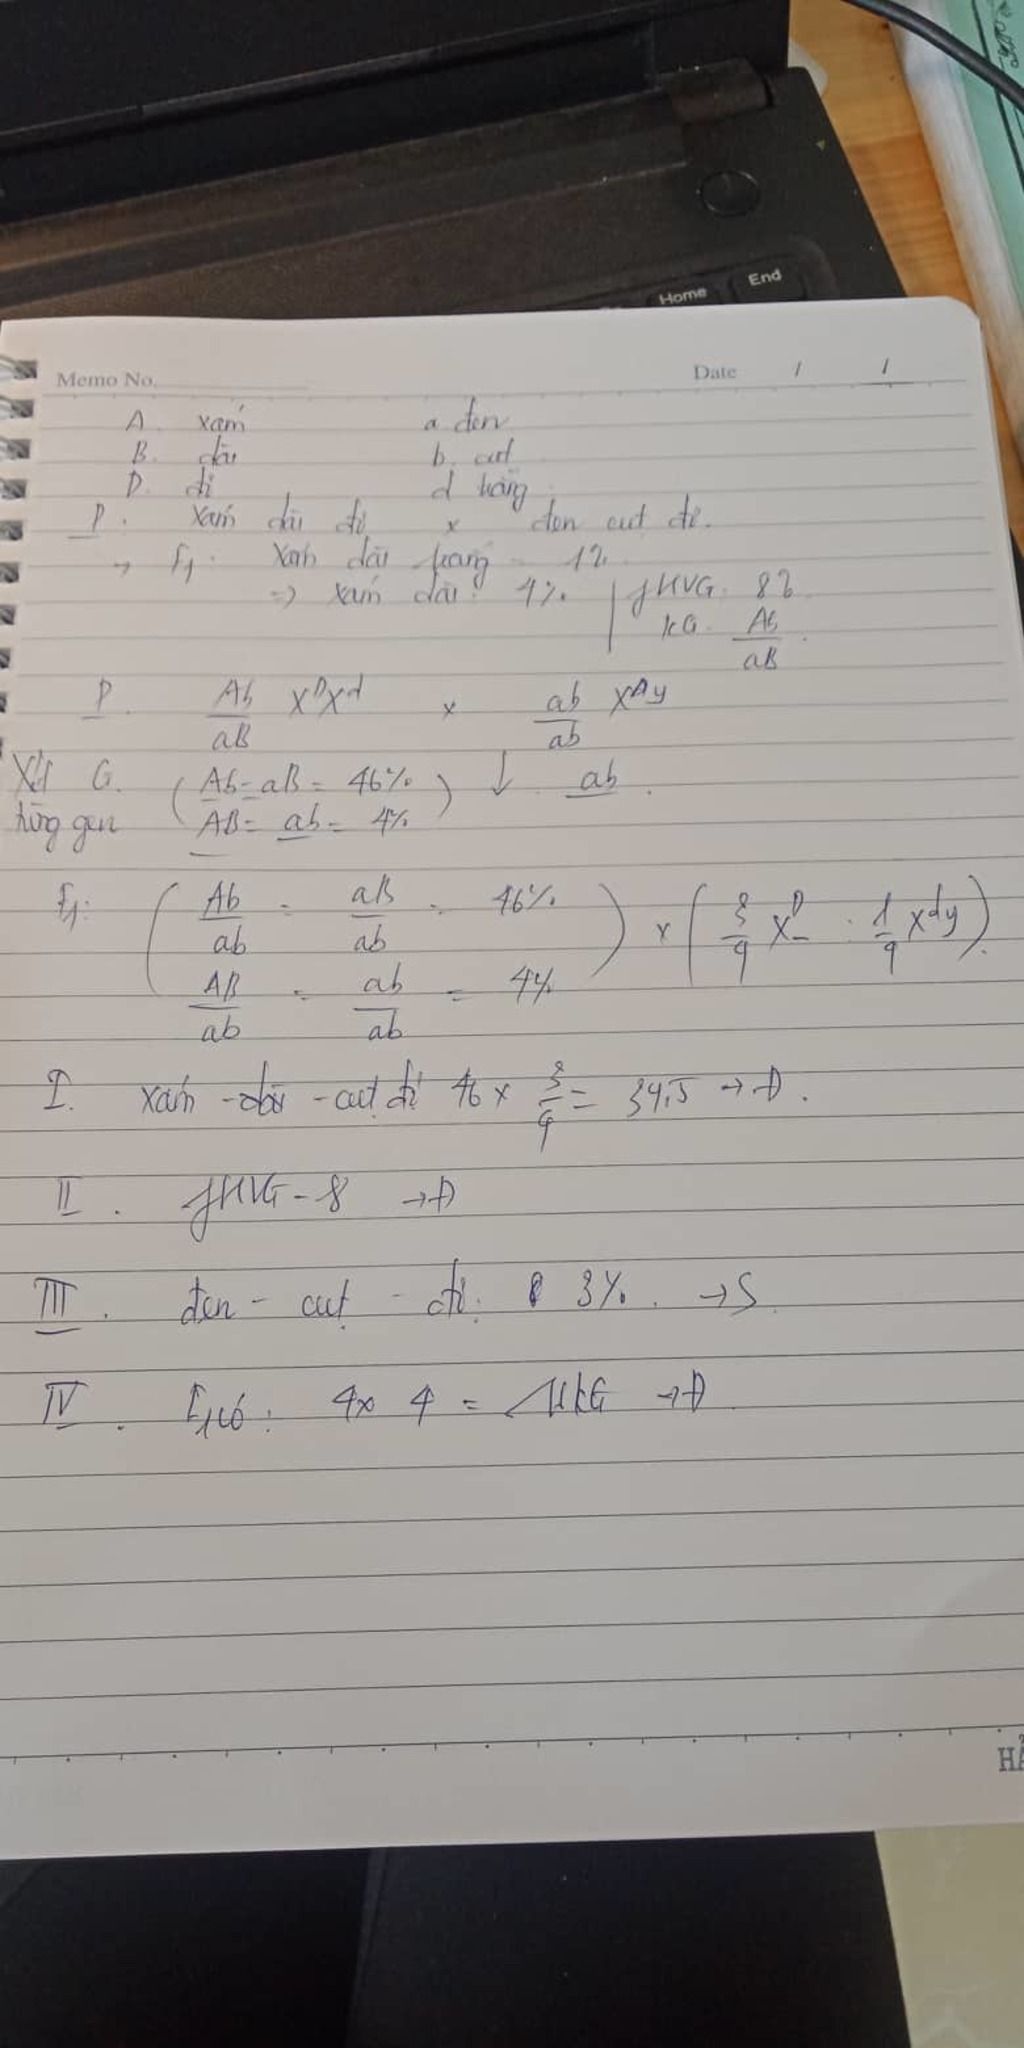 Home End
Memo No. Date / /
A. xám a đen
B. dài b. cụt
D. đỏ d trắng
P. xám dài đỏ x đen cụt đỏ.
→ F1: xám dài trắng = 1%
=> xám dài: 4% | fHVG. 8%
KG. Ab/aB.
P. Ab/aB X^DX^d x ab/ab X^DY
Xét G. (Ab = aB = 46%) ↓ ab.
từng gen (AB = ab = 4%)
F1: (Ab/ab = aB/ab = 46%) x (3/4 X^D_ : 1/4 X^dY).
AB/ab = ab/ab = 4%
I. xám - dài - cụt đỏ 46 x 3/4 = 34,5 → Đ.
II. fHVG = 8 → Đ
III. đen - cụt - đỏ: 3%. → S.
IV. F1 có: 4 x 4 = 16 KG → Đ
HẢ